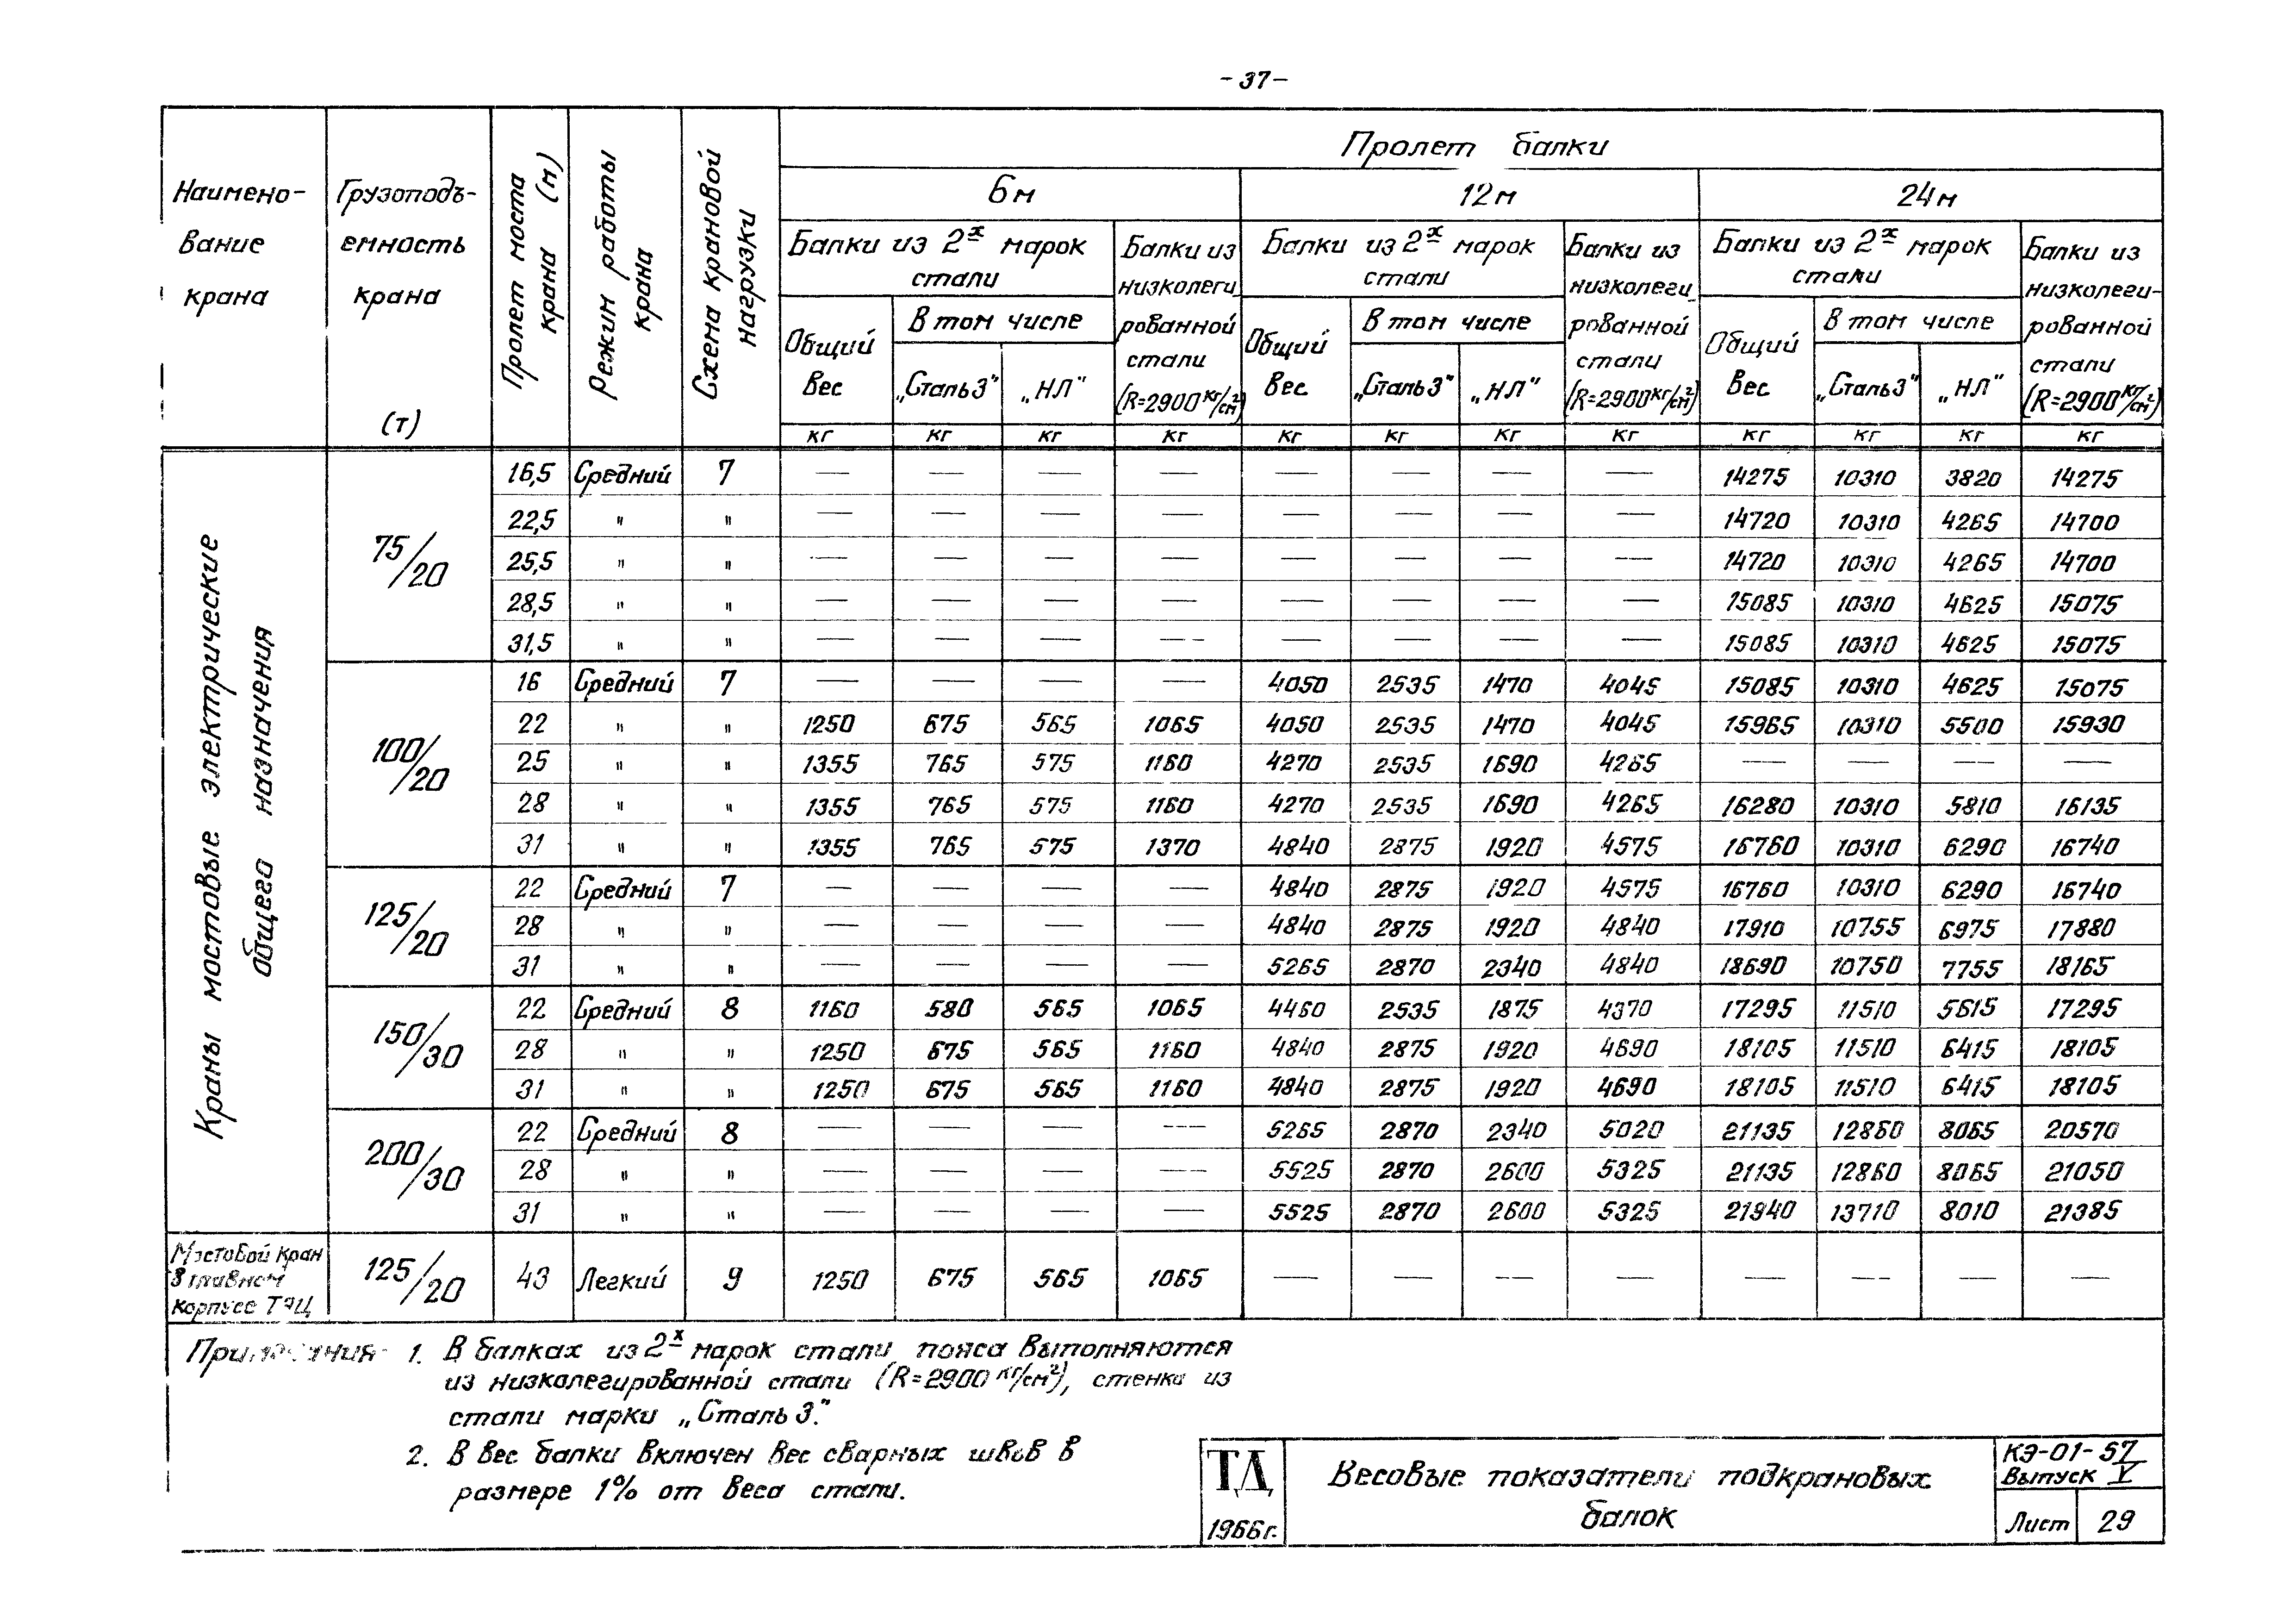 - 37 -
Пролет балки
Наимено-
вание
крана
Грузоподъ-
емность
крана
(т)
Пролет моста
крана (м)
Режим работы
крана
Схема крановой
нагрузки
6м 12м 24м
Балки из 2х марок
стали
Балки из
низколеги
рованной
стали
(R=2900кг/см²)
Балки из 2х марок
стали
Балки из
низколеги
рованной
стали
(R=2900кг/см²)
Балки из 2х марок
стали
Балки из
низколеги-
рованной
стали
(R=2900кг/см²)
Общий
вес
В том числе
„Сталь3" „НЛ"
Общий
вес
В том числе
„Сталь3" „НЛ"
Общий
вес
В том числе
„Сталь3" „НЛ"
кг кг кг кг кг кг кг кг кг кг кг кг
Краны мостовые электрические
общего назначения
75/20
16,5 Средний 7 — — — — — — — — 14275 10310 3820 14275
22,5 " " — — — — — — — — 14720 10310 4265 14700
25,5 " " — — — — — — — — 14720 10310 4265 14700
28,5 " " — — — — — — — — 15085 10310 4625 15075
31,5 " " — — — — — — — — 15085 10310 4625 15075
100/20
16 Средний 7 — — — — 4050 2535 1470 4045 15085 10310 4625 15075
22 " " 1250 675 565 1065 4050 2535 1470 4045 15965 10310 5500 15930
25 " " 1355 765 575 1160 4270 2535 1690 4265 — — — —
28 " " 1355 765 575 1160 4270 2535 1690 4265 16280 10310 5810 16135
31 " " 1355 765 575 1370 4840 2875 1920 4575 16760 10310 6290 16740
125/20
22 Средний 7 — — — — 4840 2875 1920 4575 16760 10310 6290 16740
28 " " — — — — 4840 2875 1920 4840 17910 10755 6975 17880
31 " " — — — — 5265 2870 2340 4840 18690 10750 7755 18165
150/30
22 Средний 8 1160 580 565 1065 4460 2535 1875 4370 17295 11510 5615 17295
28 " " 1250 675 565 1160 4840 2875 1920 4690 18105 11510 6415 18105
31 " " 1250 675 565 1160 4840 2875 1920 4690 18105 11510 6415 18105
200/30
22 Средний 8 — — — — 5265 2870 2340 5020 21135 12860 8065 20570
28 " " — — — — 5525 2870 2600 5325 21135 12860 8065 21050
31 " " — — — — 5525 2870 2600 5325 21940 13710 8010 21385
Мостовой кран
в главном
корпусе ТЭЦ
125/20 43 Легкий 9 1250 675 565 1065 — — — — — — — —
Примечания 1. В балках из 2х марок стали пояса выполняются
из низколегированной стали (R=2900 кг/см²), стенка из
стали марки „Сталь 3."
2. В вес балки включен вес сварных швов в
размере 1% от веса стали.
ТД
1966г.
Весовые показатели подкрановых
балок
КЭ-01-57
Выпуск V
Лист 29